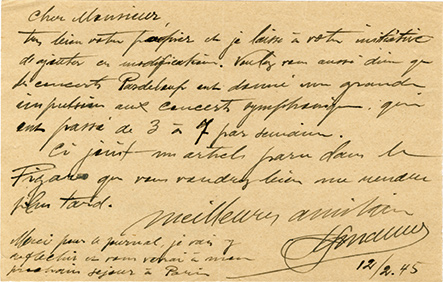 Cher Monsieur,
très bien votre papier et je laisse à votre initiative
d'ajouter ou modification. Voulez vous aussi dire que
les concerts Pasdeloup ont donné une grande
impulsion aux concerts symphonique, qui
ont passé de 3 à 7 par semaine.
Ci joint un article paru dans le
Figaro que vous voudrez bien me rendre
plus tard.
meilleures amitiés
Merci pour le journal, je vais y
réfléchir et vous verrai à mon
prochain séjour à Paris
12/2.45